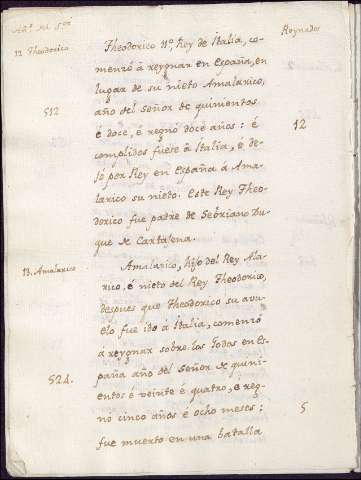 Reynados
12 Theodorico
Theodorico 11º, Rey de Italia, co-
menzó á reygnar en España, en
lugar de su nieto Amalarico,
512
año del Señor de quinientos
é doce, é regnó doce años: é
12
complidos fuese á Italia, é de-
jó por Rey en España á Ama-
larico su nieto. Este Rey Theo-
dorico fue padre de Sebriano Du-
que de Cartajena.
13. Amalarico
Amalarico, hijo del Rey Ala-
rico, é nieto del Rey Theodorico,
despues que Theodorico su avu-
elo fue ido á Italia, comenzó
á reygnar sobre los Godos en Es-
524.
paña año del Señor de quini-
entos é veinte é quatro, é reg-
nó cinco años é ocho meses:
5
fue muerto en una batalla